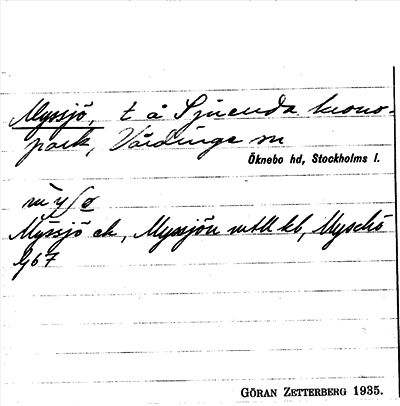 Myssjö, t å Sjuenda krono-
park, Vårdinge sn
Öknebo hd, Stockholms l.
Myssjö ek, Myssjön mtll kb, Myschö
Gb7
GÖRAN ZETTERBERG 1935.